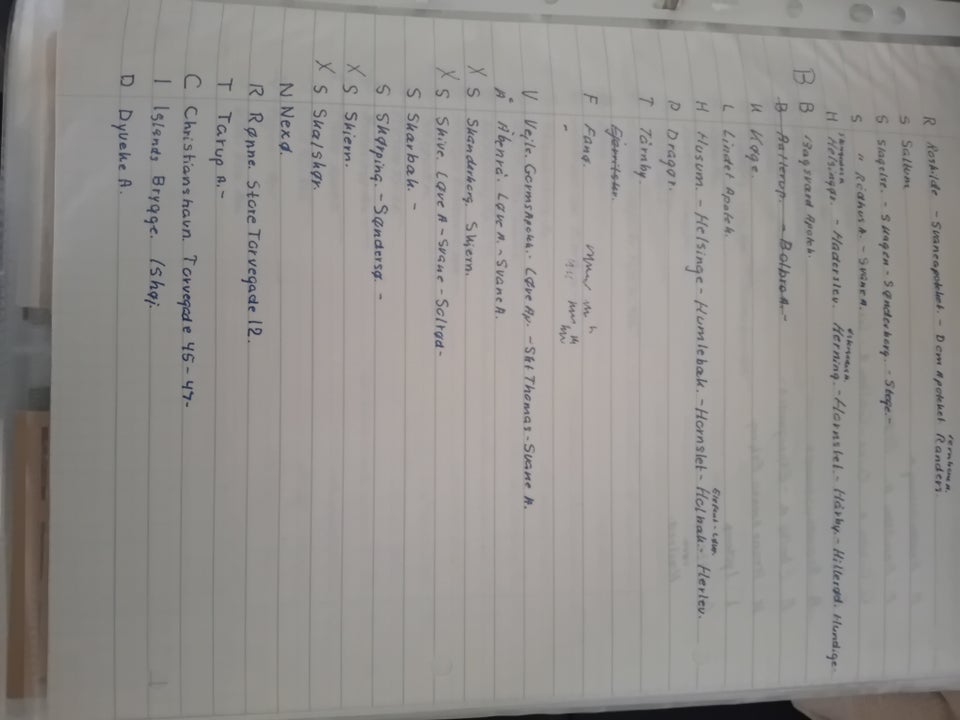 R Roskilde - Svaneapoteket. - Dom Apoteket Randers
S Sallum
S Slagelse. - Skagen - Sønderborg. - Stege. -
S " Rådhus A. - Svane A.
H Helsingør. - Haderslev. Herning. - Hornslet. - Hårby. - Hillerød. Hundige-
B B Bagsværd Apotek.
B Ballerup. - Balbro A. -
K Køge.
L Lindet Apotek.
H Husum. - Helsinge - Humlebæk. - Hornslet - Holbæk. - Herlev.
D Dragør.
T Tårnby.
F Fanø.
V Vejle. Gorms Apotek. Løve Ap. - Skt Thomas - Svane A.
Å Åbenrå. Løve A. - Svane A.
X S Skanderborg. Skjern.
X S Skive. Løve A - Svane - Solrød -
S Skærbæk. -
S Skørping. - Søndersø. -
X S Skjern.
X S Skælskør.
N Nexø.
R Rønne. Store Torvegade 12.
T Tarup A. -
C Christianshavn. Torvegade 45 - 47 -
I Islands Brygge. Ishøj.
D Dyveke A.